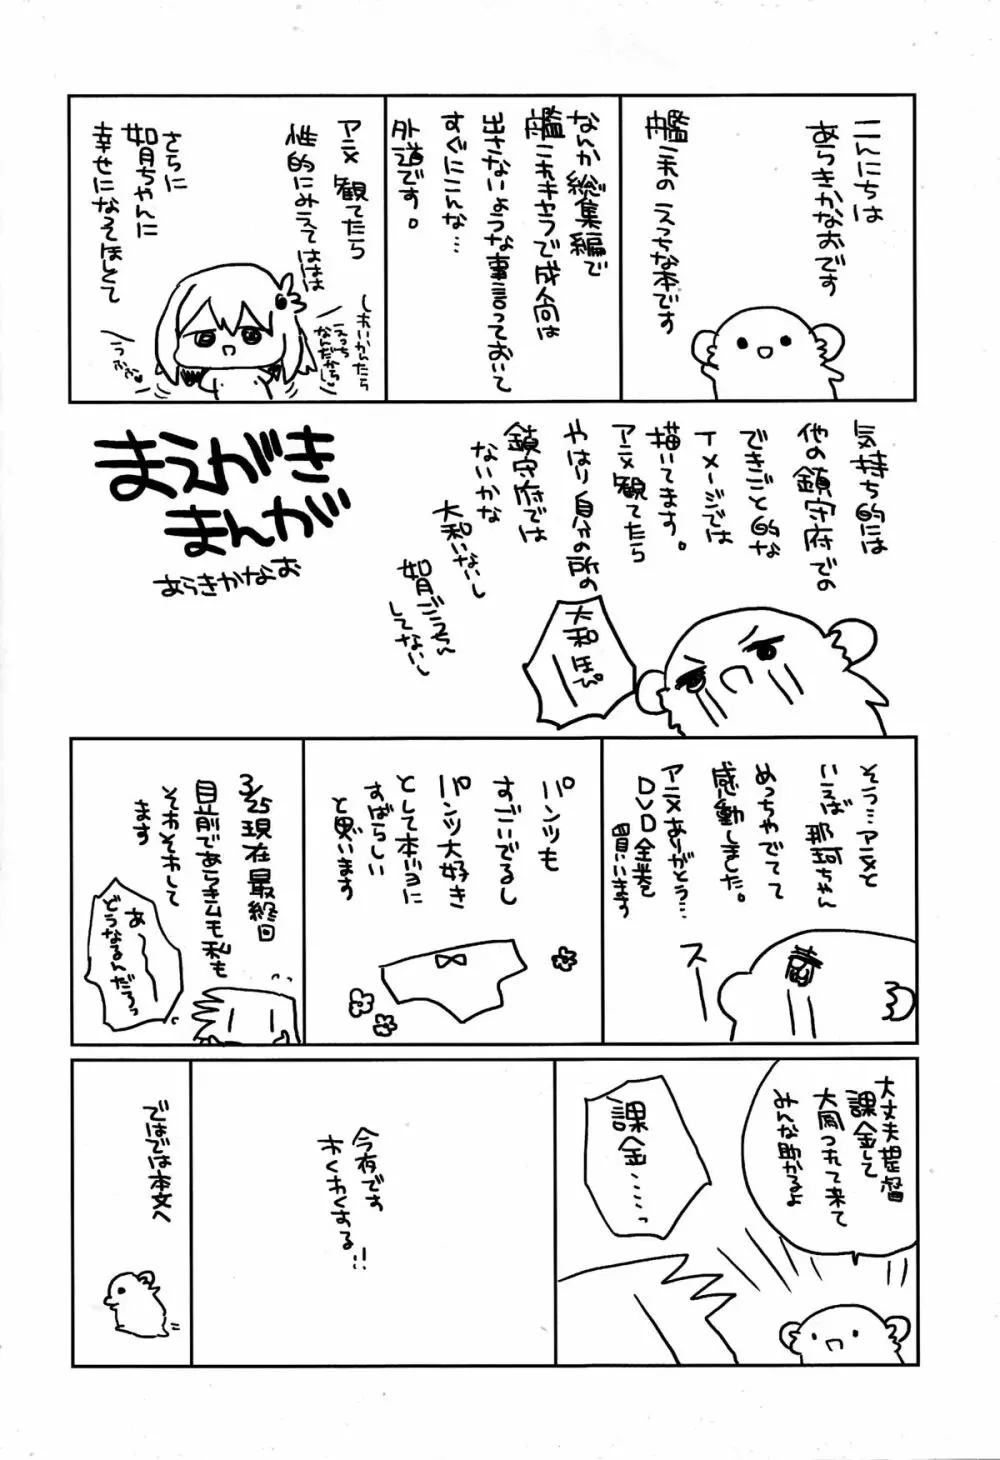 こんにちは
あらきかなおです
艦これの えっちな本です
なんか総集編で
艦これキャラで成人向は
出さないような事言っておいて
すぐにこんな…
外道です。
アニメ 観てたら
性的にみえてははは
さらに
如月ちゃんに
幸せになってほしくて
えっち
なんだから
うふふ♥
まえがき
まんが
あらきかなお
気持ち的には
他の鎮守府での
できごと的な
イメージでは
描いてます。
アニメ観てたら
やはり自分の所の
鎮守府では
ないかな
大和いないし
如月ごうちん
してないし
大和ほぴ
そう…アニメと
いえば 那珂ちゃん
めっちゃでてて
感動しました。
アニメありがとう…
DVD全巻
買います
スー
パンツも
すごいでるし
パンツ大好き
として本当に
すばらしい
と思います
3/25現在最終回
目前であらきムも私も
そわそわして
ます
あーー
どうなるんだろっ
大丈夫提督
課金して
大間つれて来て
みんな助かるよ
課金……っ
今夜です
わくわくする!!
ではでは本文へ